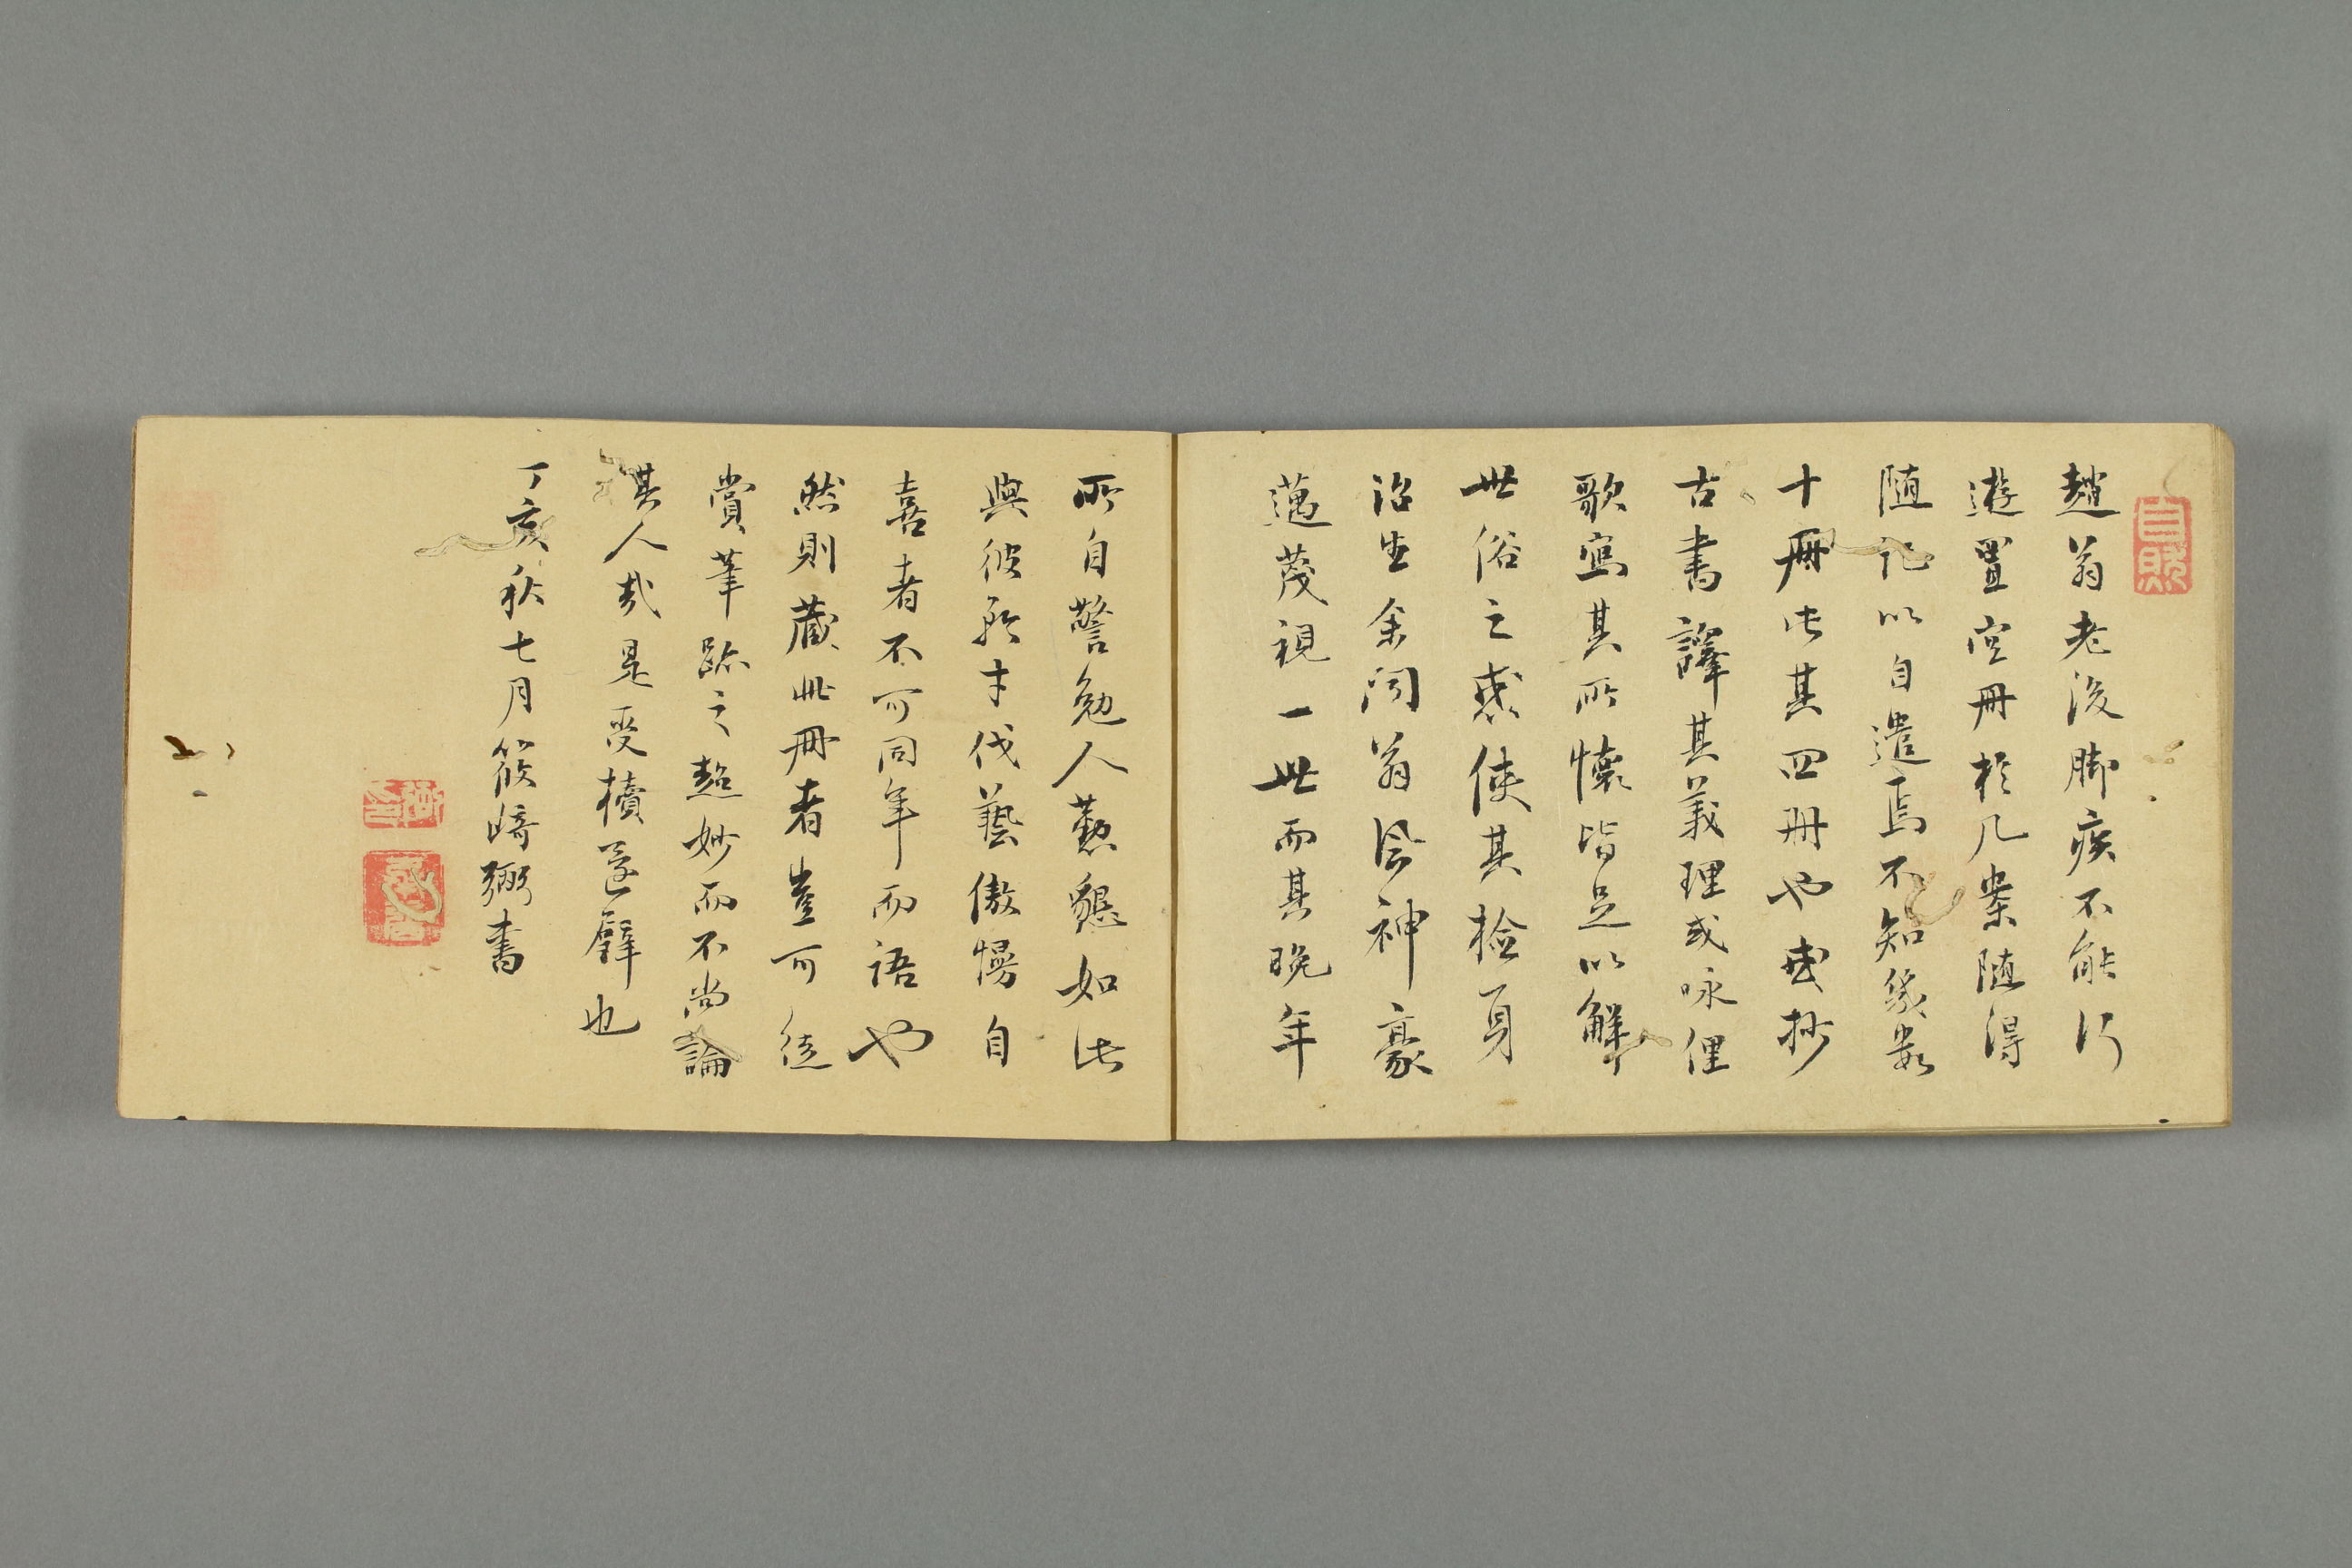 趙翁老後脚疾不能行
遊置空冊於几案随得
随記以自遣焉不知幾数
十冊此其四冊也或抄
古書譯其義理或咏俚
歌寫其所懐皆足以解
世俗之惑使其檢身
治生余聞翁風神豪
邁蔑視一世而其晩年
所自警勉人懃懇如此
與彼矜才伐藝傲慢自
喜者不可同年而語也
然則蔵此冊者豈可徒
賞筆跡之超妙而不尚論
其人哉是受櫝還璧也
丁亥秋七月筱崎弼書